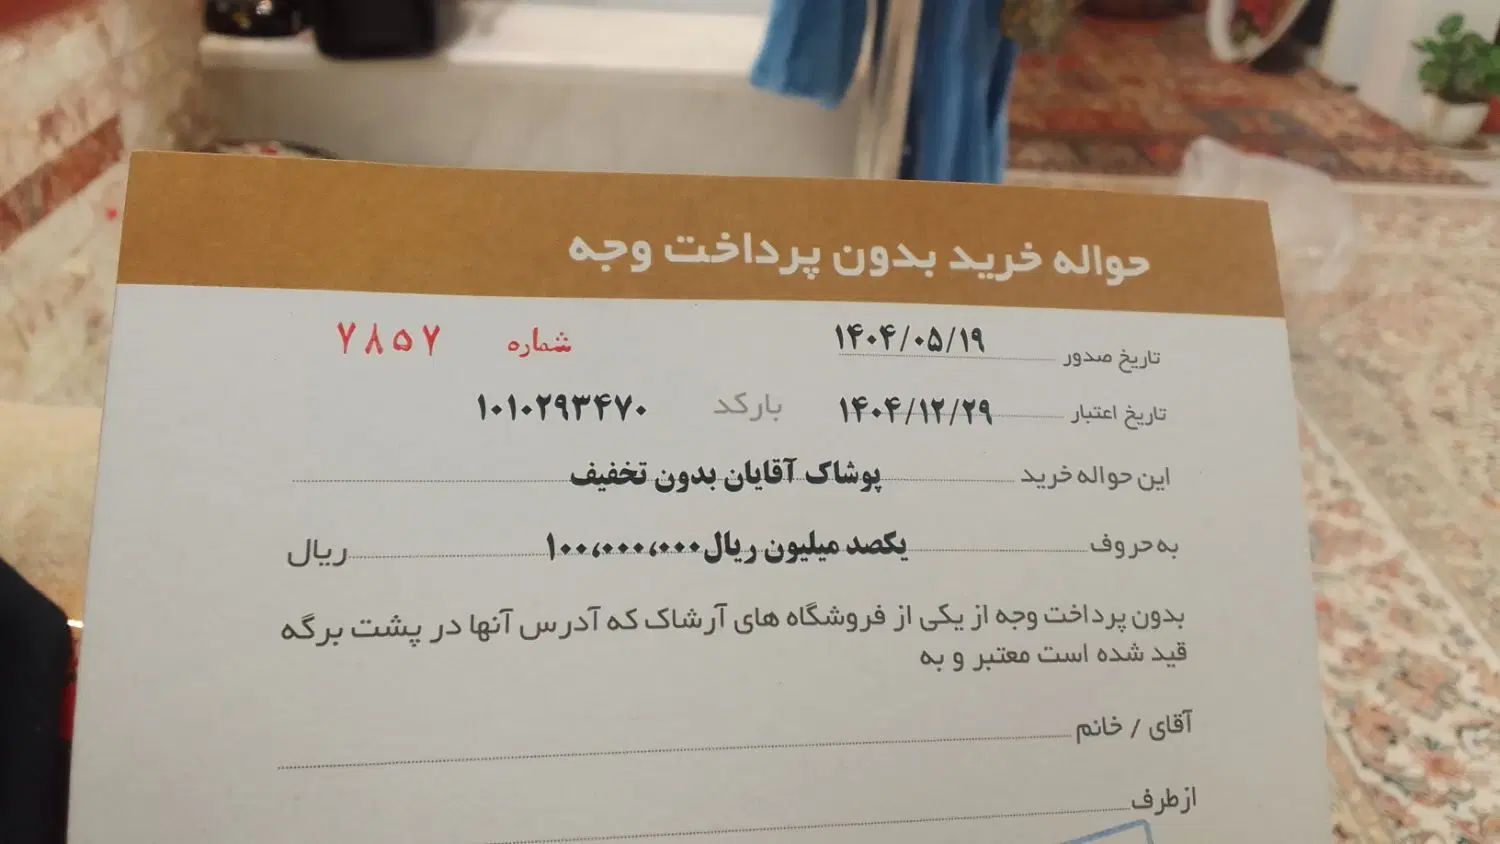 حواله خرید بدون پرداخت وجه
تاریخ صدور ۱۴۰۴/۰۵/۱۹ شماره ۷۸۵۷
تاریخ اعتبار ۱۴۰۴/۱۲/۲۹ بارکد ۱۰۱۰۲۹۳۴۷۰
این حواله خرید پوشاک آقایان بدون تخفیف
به حروف یکصد میلیون ریال ۱۰۰،۰۰۰،۰۰۰ ریال
بدون پرداخت وجه از یکی از فروشگاه های آرشاک که آدرس آنها در پشت برگه
قید شده است معتبر و به
آقای / خانم
از طرف